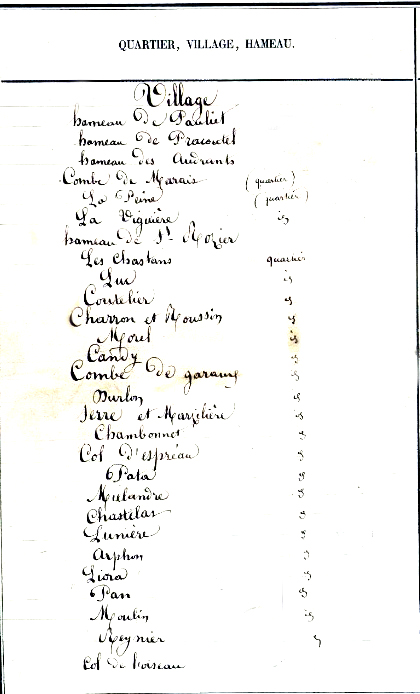 QUARTIER, VILLAGE, HAMEAU.
Village
hameau de Pauliet
hameau de
hameau des
Combe de Marais (quartier)
La Peine (quartier)
La Viguière id
hameau de St Rozier
Les Chastans quartier
Luc id
Coutelier id
Charron et Roussin id
Morel id
Candy id
Combe de garaux id
Durlon id
Serre et Marzelière id
Chambonnet id
Col d'espréau id
Pata id
Mielandre id
Chastelas id
Lumière id
Arphon id
Liora id
Pan id
Moulin id
Reynier id
Col de